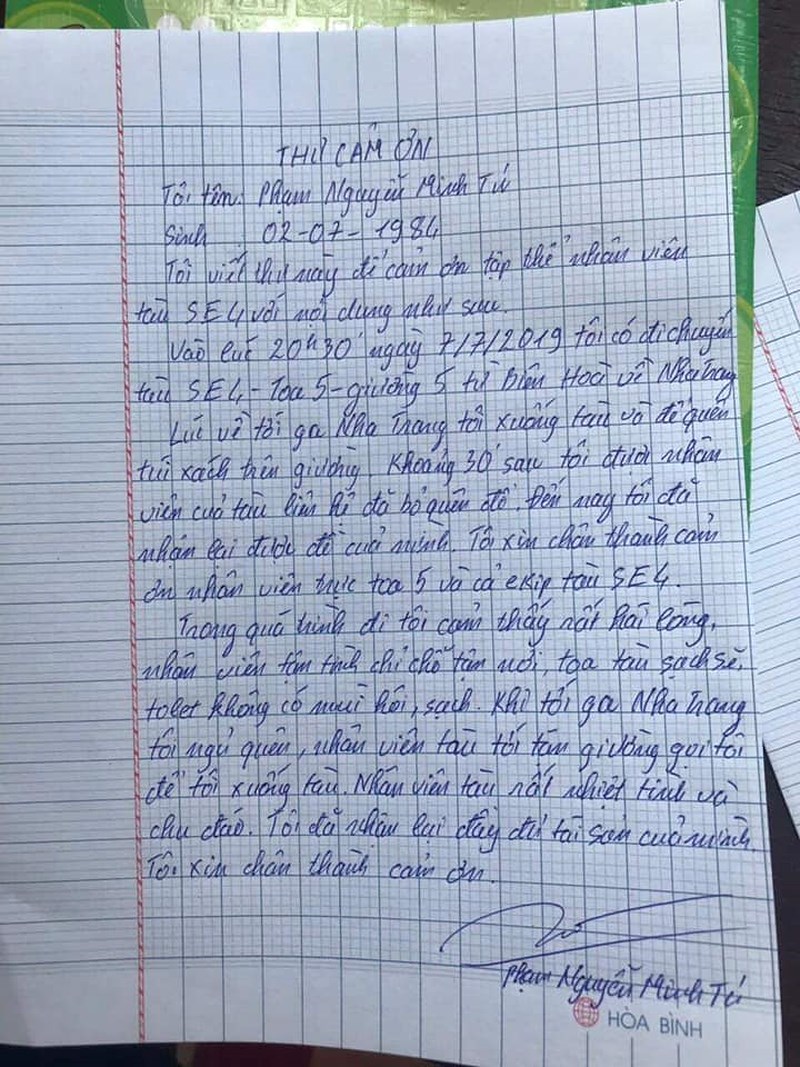 THƯ CẢM ƠN
Tôi tên: Phạm Nguyễn Minh Tú
Sinh : 02-07-1984
Tôi viết thư này để cảm ơn tập thể nhân viên
tàu SE4 với nội dung như sau.
Vào lúc 20h30' ngày 7/7/2019 tôi có đi chuyến
tàu SE4 - Toa 5 - giường 5 từ Biên Hoà về Nha Trang
Lúc về tới ga Nha Trang tôi xuống tàu và để quên
túi xách trên giường. Khoảng 30' sau tôi được nhân
viên của tàu liên hệ đã bỏ quên đồ. Đến nay tôi đã
nhận lại được đồ của mình. Tôi xin chân thành cảm
ơn nhân viên trực toa 5 và cả ekip tàu SE4.
Trong quá trình đi tôi cảm thấy rất hài lòng,
nhân viên tận tình chỉ chỗ tận nơi, toa tàu sạch sẽ,
tolet không có muì hôi, sạch. Khi tới ga Nha Trang
tôi ngủ quên, nhân viên tàu tới tận giường gọi tôi
để tôi xuống tàu. Nhân viên tàu rất nhiệt tình và
chu đáo. Tôi đã nhận lại đầy đủ tài sản của mình.
Tôi xin chân thành cảm ơn.
Phạm Nguyễn Minh Tú
HÒA BÌNH